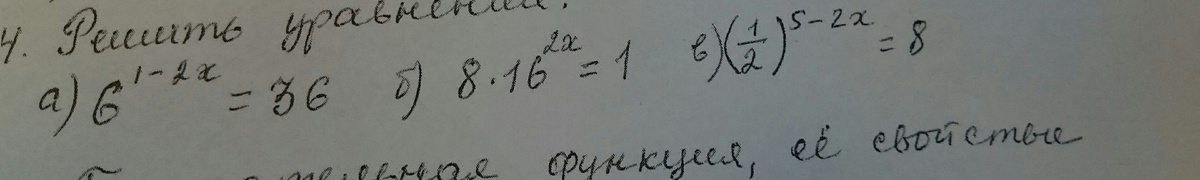 4. Решить уравнения:
а) 6^{1-2x} = 36 б) 8·16^{2x} = 1 в) (1/2)^{5-2x} = 8
функция, её свойства